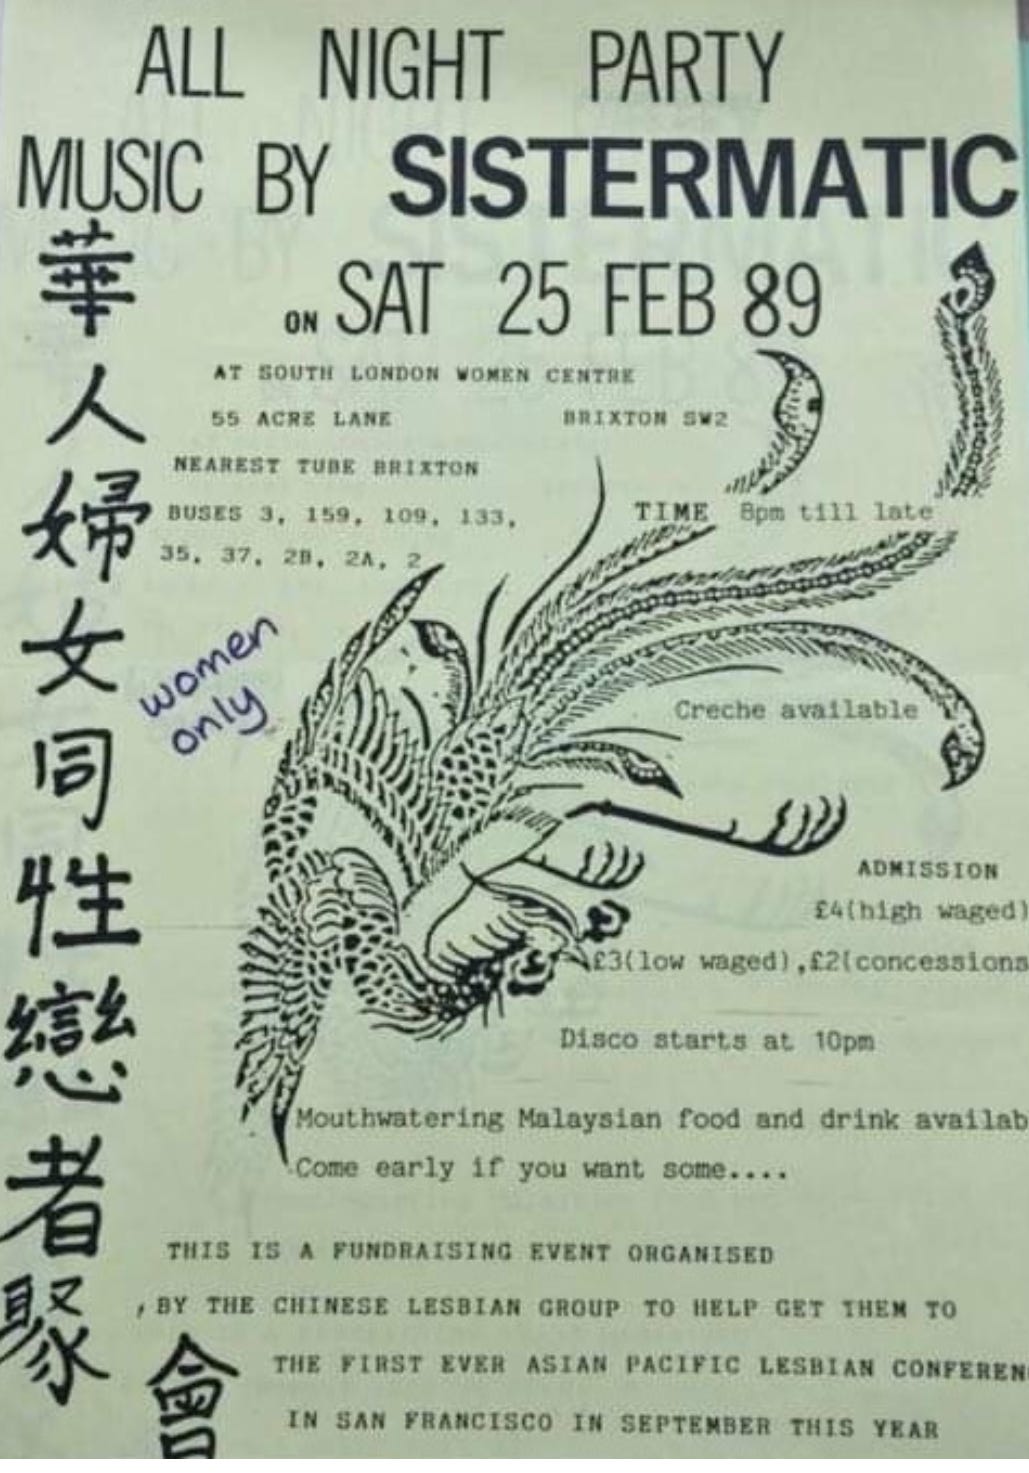 ALL NIGHT PARTY
MUSIC BY SISTERMATIC
ON SAT 25 FEB 89
AT SOUTH LONDON WOMEN CENTRE
55 ACRE LANE BRIXTON SW2
NEAREST TUBE BRIXTON
BUSES 3, 159, 109, 133,
35, 37, 2B, 2A, 2
TIME 8pm till late
women
only
Creche available
ADMISSION
£4(high waged)
£3(low waged),£2(concessions
Disco starts at 10pm
Mouthwatering Malaysian food and drink availab
Come early if you want some....
THIS IS A FUNDRAISING EVENT ORGANISED
BY THE CHINESE LESBIAN GROUP TO HELP GET THEM TO
THE FIRST EVER ASIAN PACIFIC LESBIAN CONFEREN
IN SAN FRANCISCO IN SEPTEMBER THIS YEAR
華人婦女同性戀者聚會